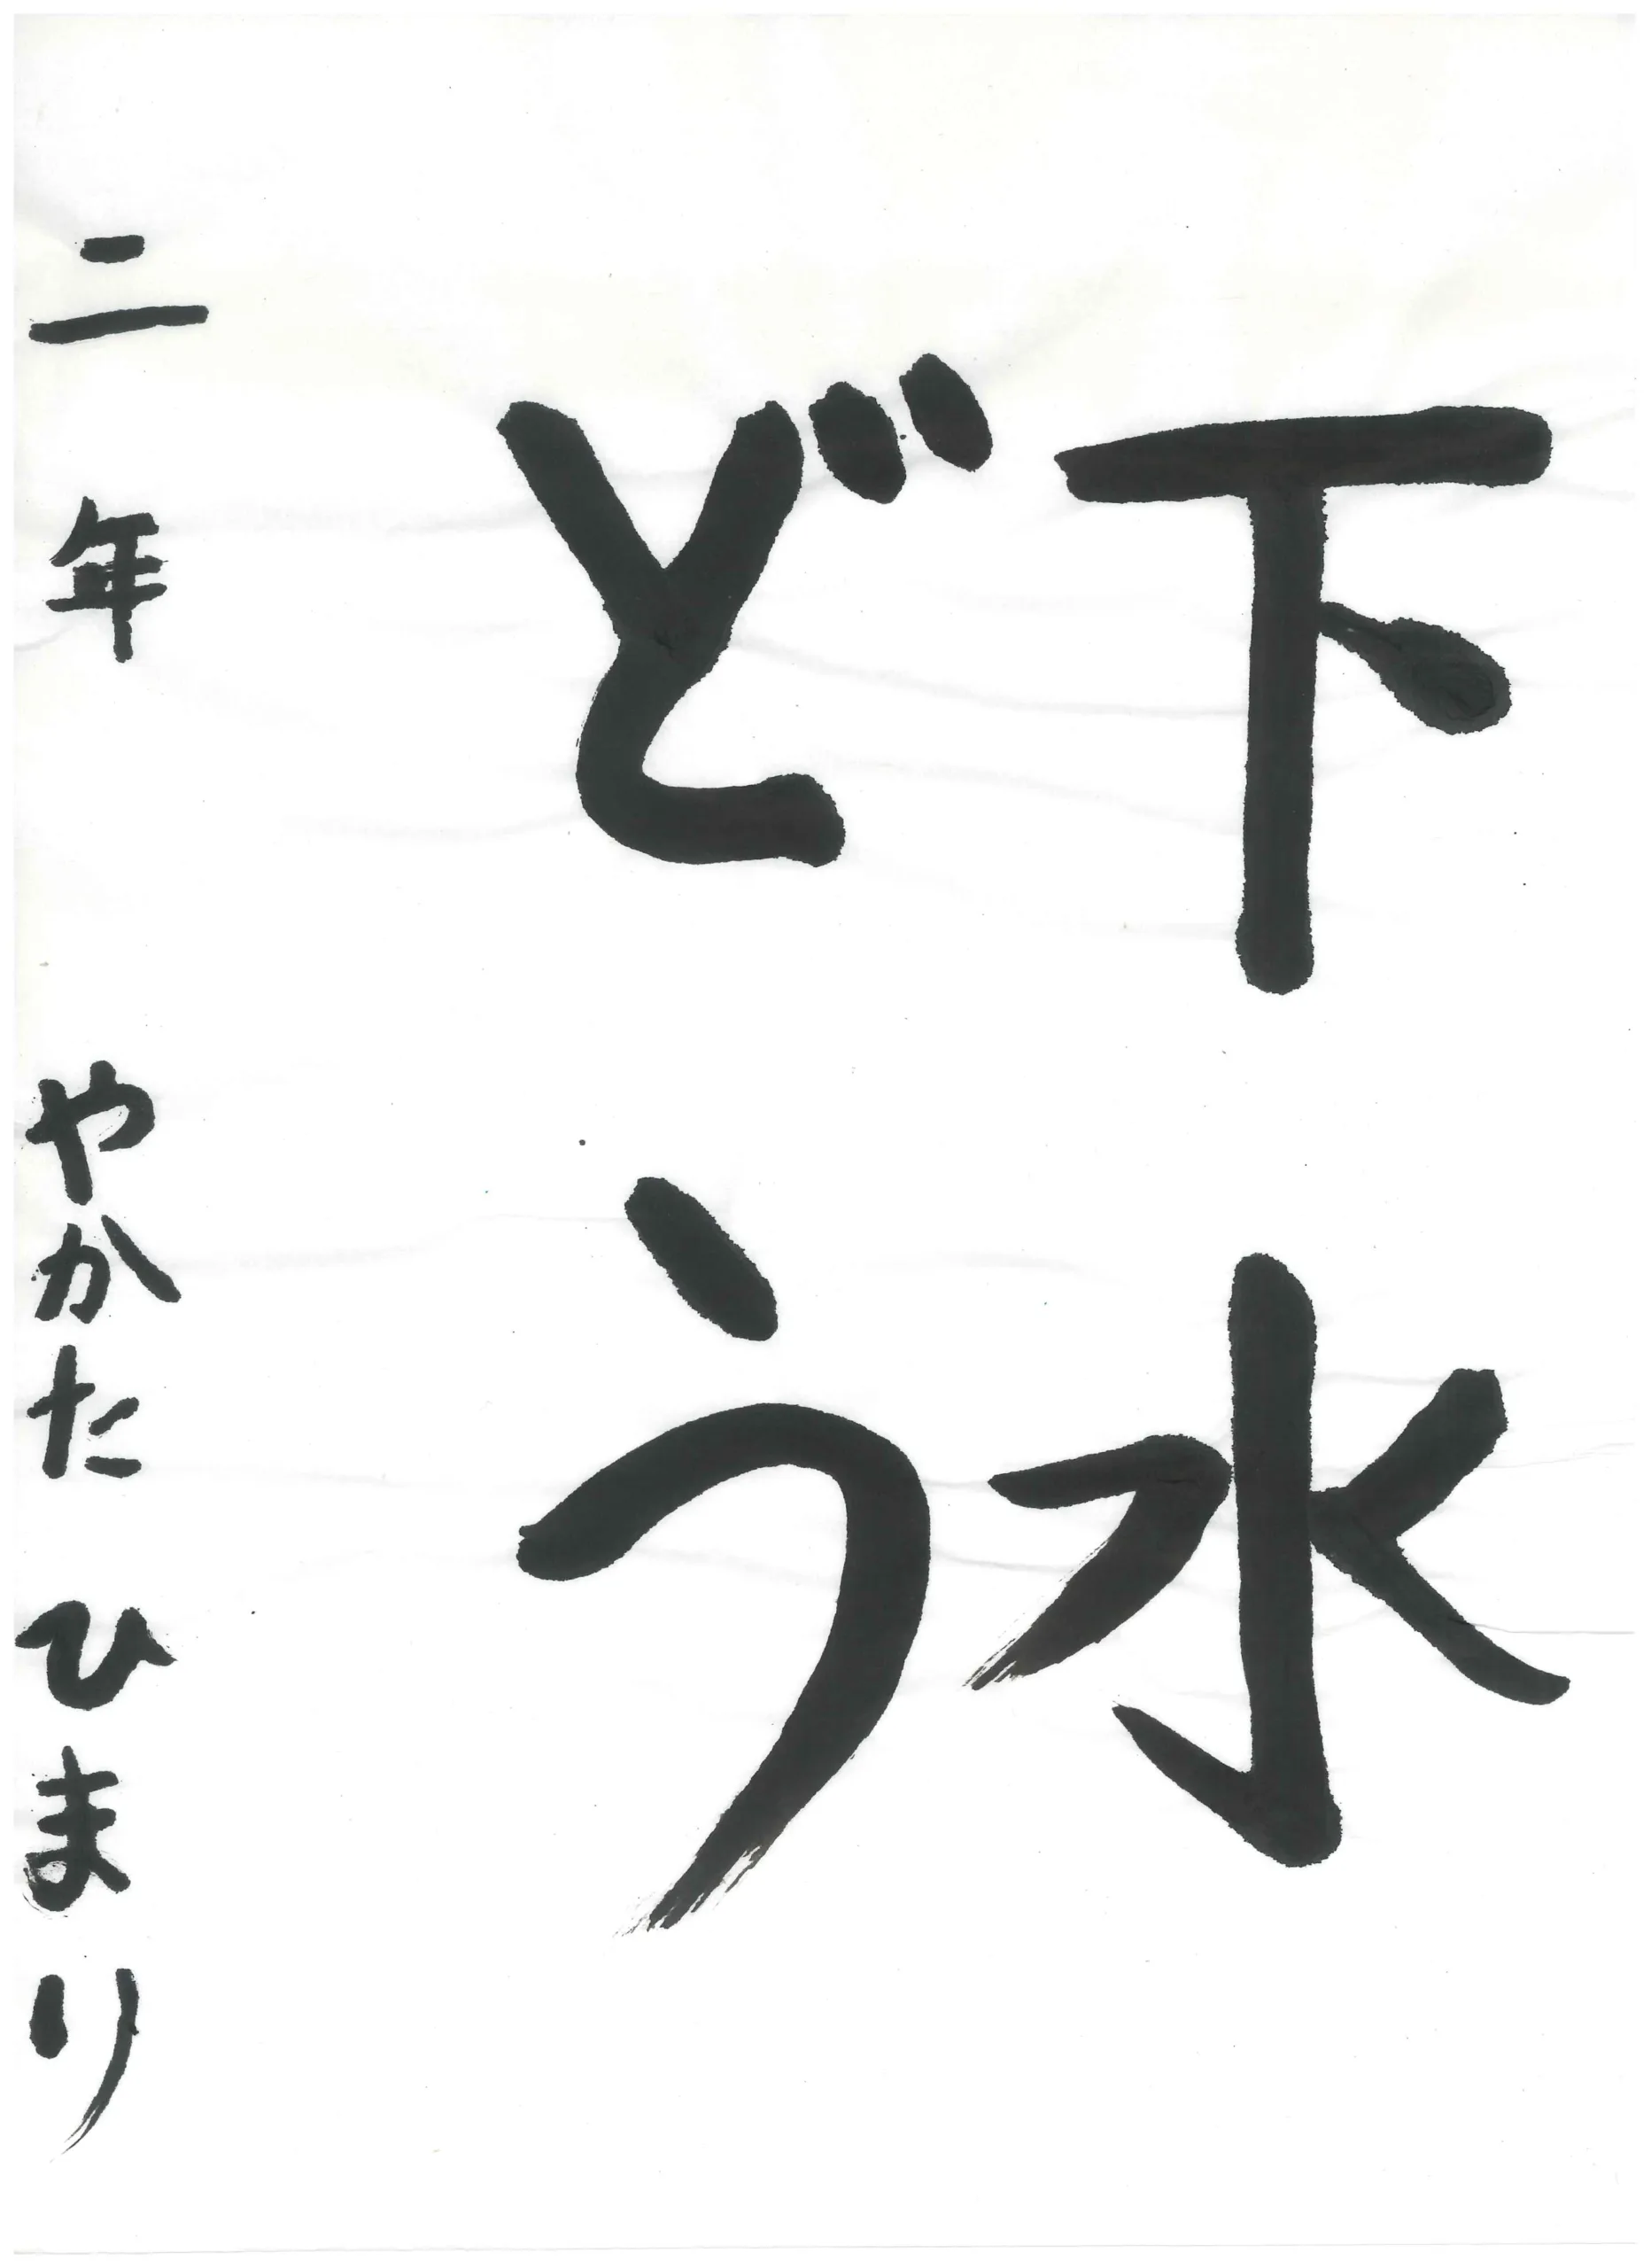 下水
どう
二年 やかた ひまり